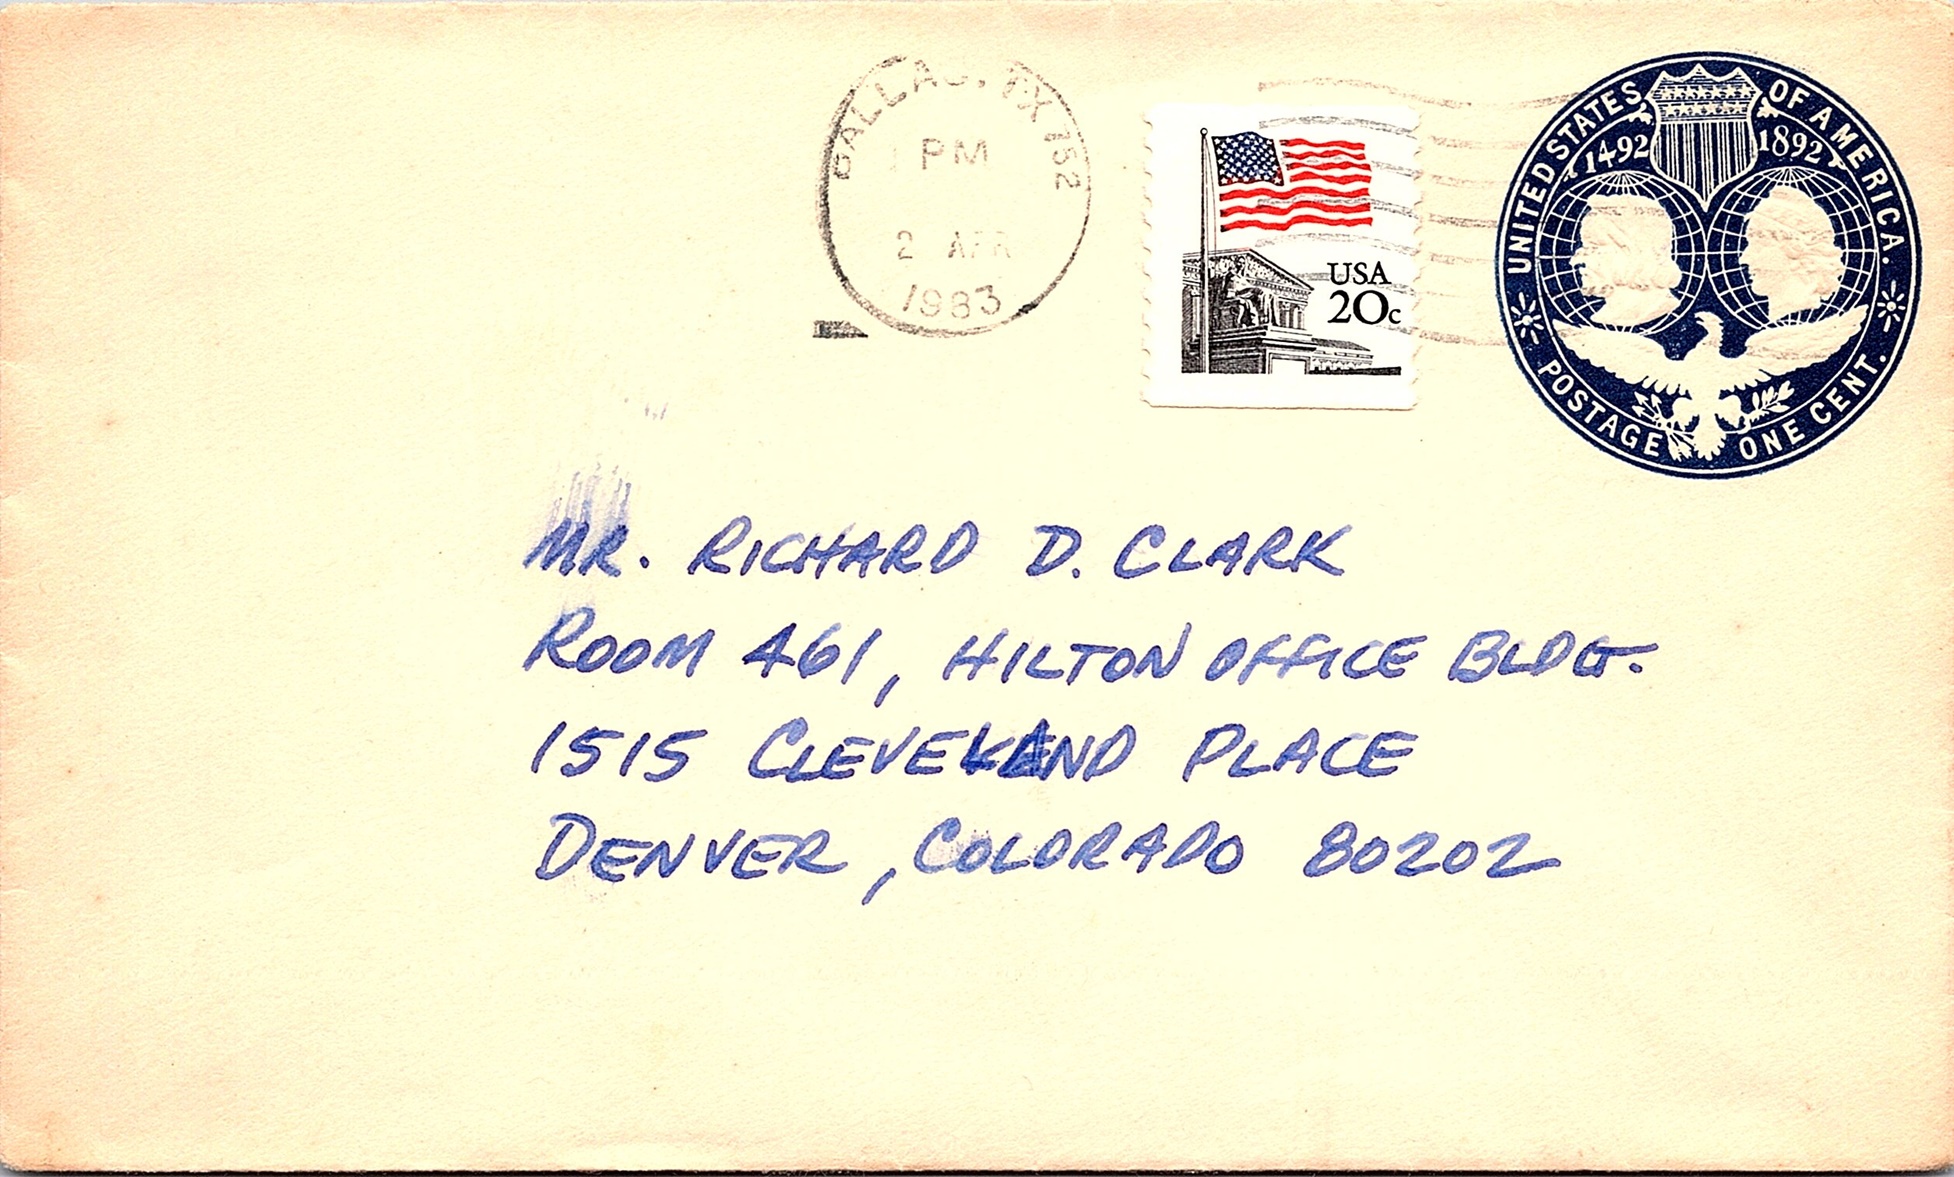 DALLAS, TX 752
PM
2 APR
1983
USA
20c
UNITED STATES OF AMERICA.
1492 1892
POSTAGE ONE CENT.
MR. RICHARD D. CLARK
ROOM 461, HILTON OFFICE BLDG.
1515 CLEVELAND PLACE
DENVER, COLORADO 80202